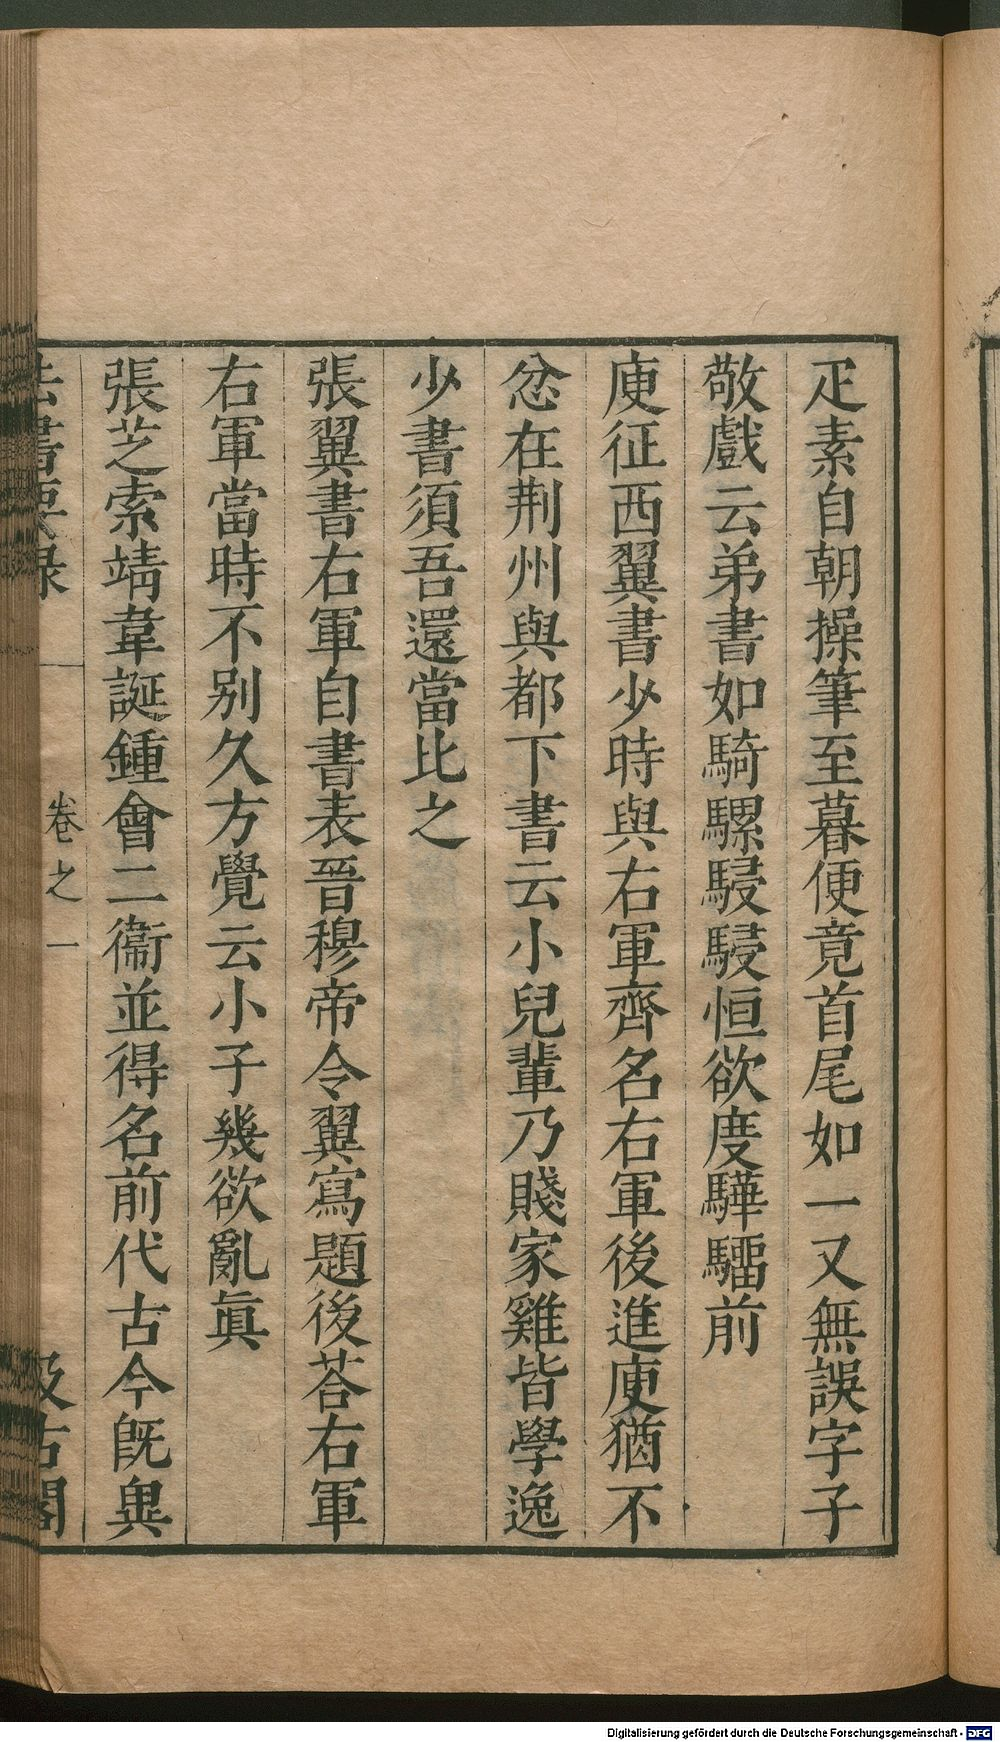 疋素自朝操筆至暮便竟首尾如一又無誤字子
敬戲云弟書如騎騾駸駸恒欲度驊騮前
庾征西翼書少時與右軍齊名右軍後進庾猶不
忿在荆州與都下書云小兒輩乃賤家雞皆學逸
少書須吾還當比之
張翼書右軍自書表晉穆帝令翼寫題後荅右軍
右軍當時不别久方覺云小子幾欲亂眞
張芝索靖韋誕鍾會二衞並得名前代古今旣異
法書要録
卷之一
汲古閣
Digitalisierung gefördert durch die Deutsche Forschungsgemeinschaft - DFG